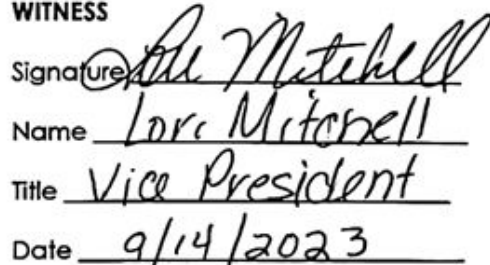 WITNESS
Signature Lori Mitchell
Name Lori Mitchell
Title Vice President
Date 9/14/2023